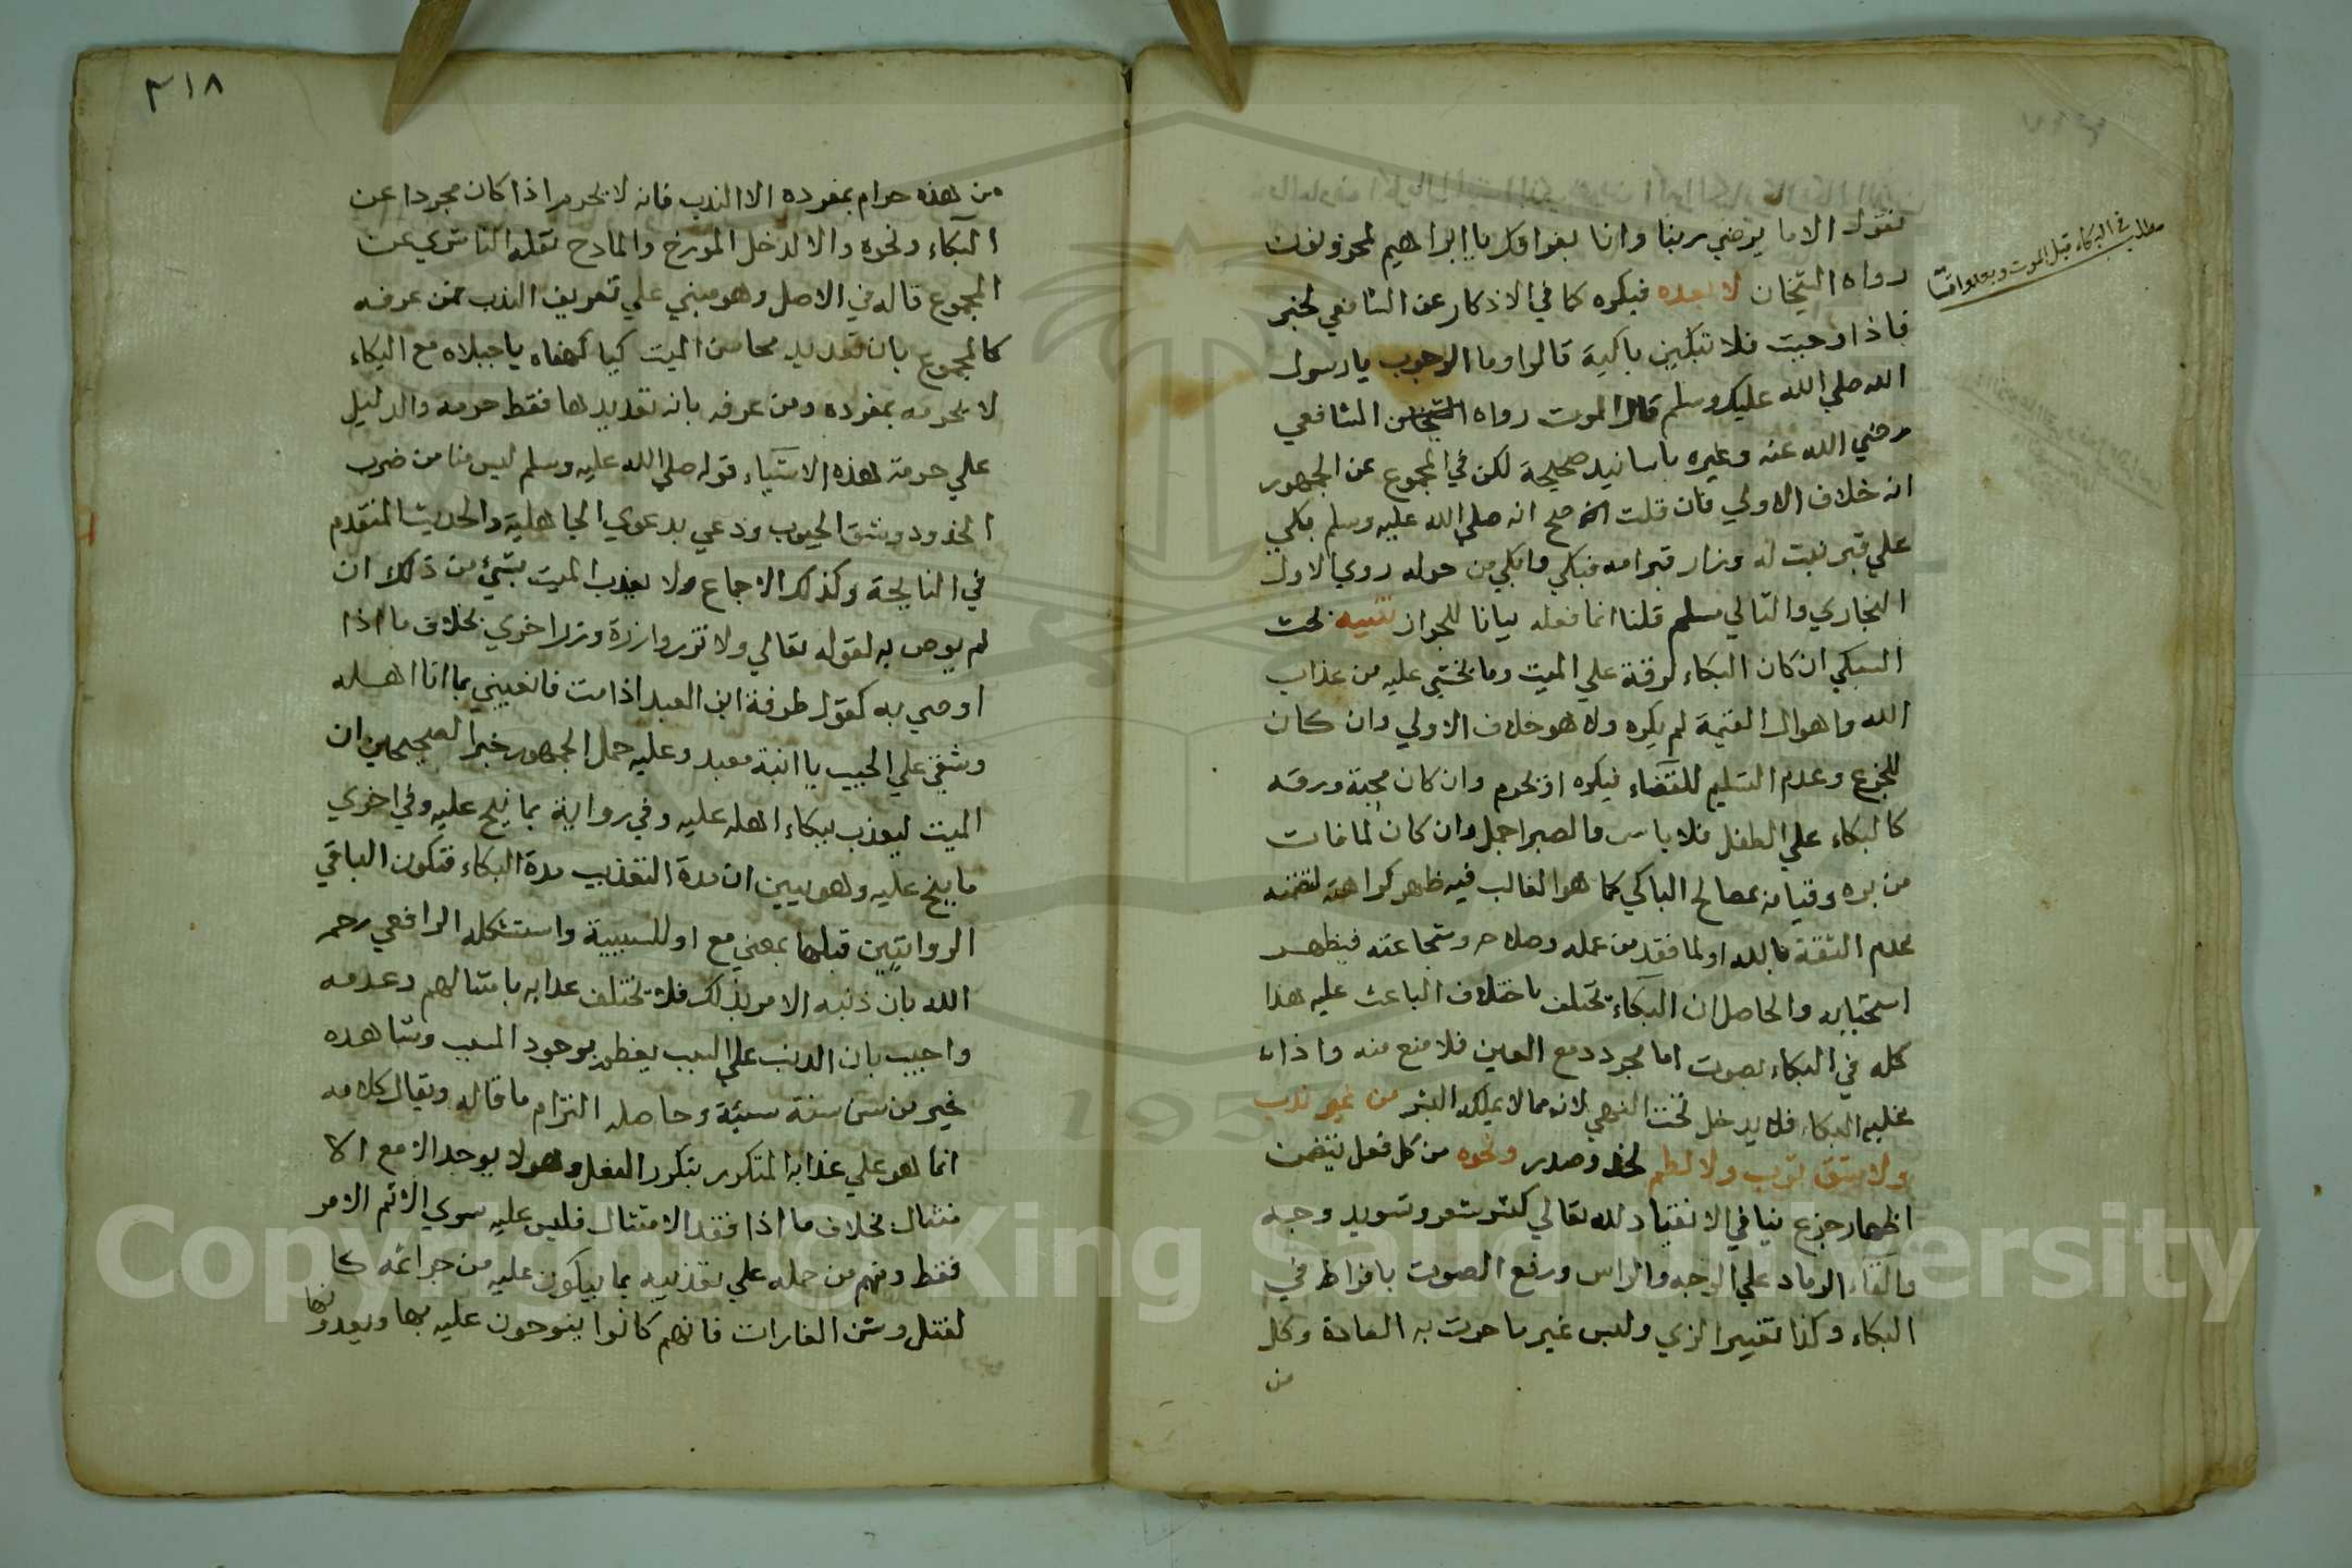 مطلب في البكاء قبل الموت وبعده
نقول الا ما يرضي ربنا وانا بفراقك يا ابراهيم لمحزونون
رواه الشيخان لا بعده فيكره كما في الاذكار عن الشافعي لخبر
فاذا وجبت فلا تبكين باكية قالوا وما الوجوب يا رسول
الله صلي الله عليك وسلم قال الموت رواه الشافعي
رضي الله عنه وغيره باسانيد صحيحة لكن في المجموع عن الجمهور
انه خلاف الاولي فان قلت صح انه صلي الله عليه وسلم بكي
علي قبر بنت له وزار قبر امه فبكي وابكي من حوله روي الاول
البخاري والثاني مسلم قلنا انما فعله بيانا للجواز تنبيه بحث
السبكي ان كان البكاء لرقة علي الميت وما يخشي عليه من عذاب
الله واهوال القيمة لم يكره ولا هو خلاف الاولي وان كان
للجزع وعدم التسليم للقضاء فيكره او يحرم وان كان محبة ورقة
كالبكاء علي الطفل فلا باس والصبر اجمل وان كان لما فات
من بره وقيامه بمصالح الباكي كما هو الغالب فيه ظهر كراهته لتضمنه
عدم الثقة بالله او لما فقد من عمله وصلاحه وشجاعته فيظهر
استحبابه والحاصل ان البكاء يختلف باختلاف الباعث عليه هذا
كله في البكاء بصوت اما مجرد دمع العين فلا منع منه واذا
غلبه البكاء فلا يدخل تحت النهي لانه مما لا يملكه البشر من غير ندب
ولا شق ثوب ولا لطم لخد وصدر ونحوه من كل فعل يتضمن
اظهار جزع ينافي الانقياد لله تعالي كنشر شعر وتسويد وجه
والقاء الرماد علي الوجه والراس ورفع الصوت بافراط في
البكاء وكذا تغيير الزي ولبس غير ما جرت به العادة وكل
من
٣١٨
من هذه حرام بمفرده الا الندب فانه لا يحرم اذا كان مجردا عن
البكاء ونحوه والا لدخل المورخ والمادح نقله الناشري عن
المجموع قاله في الاصل وهو مبني علي تعريف الندب فمن عرفه
كالمجموع بان تعديد محاسن الميت كيا كهفاه يا جبلاه مع البكاء
لا يحرمه بمفرده ومن عرفه بانه تعديدها فقط حرمه والدليل
علي حرمة هذه الاشياء قوله صلي الله عليه وسلم ليس منا من ضرب
الخدود وشق الجيوب ودعي بدعوي الجاهلية والحديث المتقدم
في النايحة وكذلك الاجماع ولا يعذب الميت بشيء من ذلك ان
لم يوص به لقوله تعالي ولا تزر وازرة وزر اخري بخلاف ما اذا
اوصي به كقول طرفة ابن العبد اذا مت فانعيني بما انا اهله
وشقي علي الجيب يا ابنة معبد وعليه حمل الجمهور خبر الصحيحين ان
الميت ليعذب ببكاء اهله عليه وفي رواية بما نيح عليه وفي اخري
ما نيح عليه وهو يبين ان مدة التعذيب مدة البكاء فتكون الباء في
الروايتين قبلها بمعني مع او للسببية واستشكله الرافعي رحمه
الله بان ذنبه الامر بذلك فلا يختلف عذابه بامتثالهم وعدمه
واجيب بان الذنب علي السبب يعظم بوجود المسبب وشاهده
خبر من سن سنة سيئة وحاصله التزام ما قاله ويقال كلامه
انما هو علي عذابه المتكرر بتكرر الفعل وهو لا يوجد الا مع الا
متثال بخلاف ما اذا فقد الامتثال فليس عليه سوي اثم الامر
فقط ومنهم من حمله علي تعذيبه بما يبكون عليه من جرائمه كا
لقتل وشن الغارات فانهم كانوا ينوحون عليه بها ويعدونها